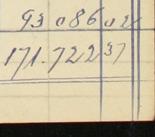 93086 02
171.722 37